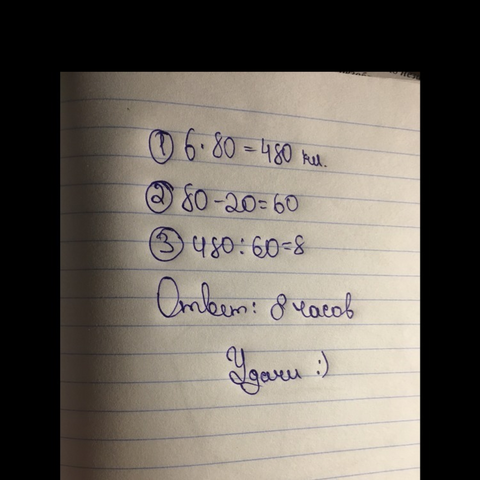 ① 6·80=480 км.
② 80-20=60
③ 480:60=8
Ответ: 8 часов
Удачи :)